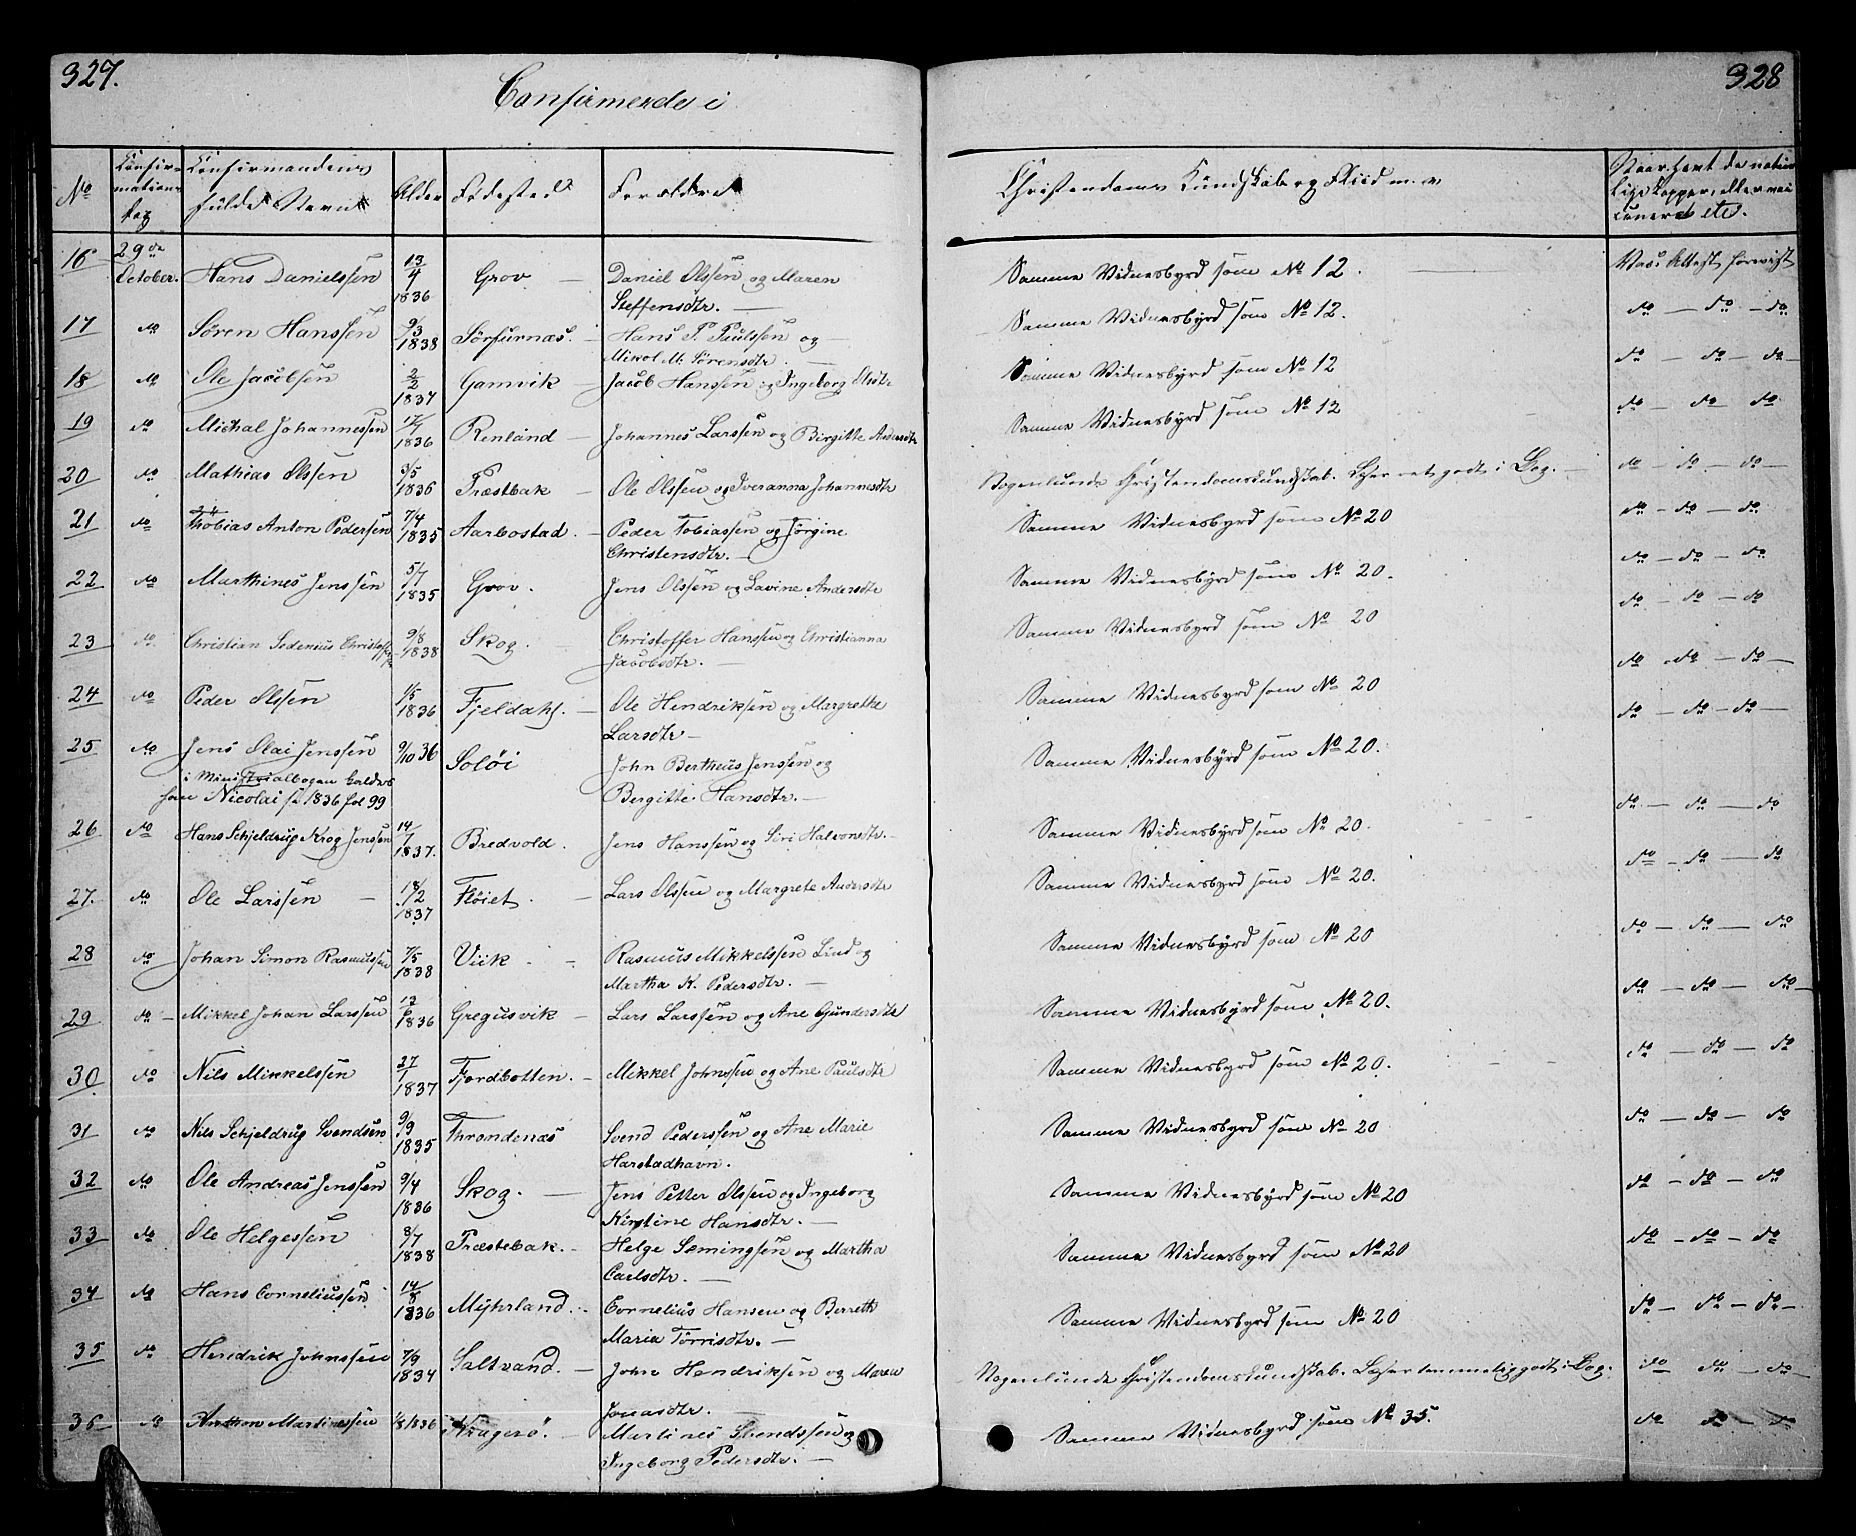 327.
Confirmerede i
328
No
Confir-
mations
dag
Confirmandens
fulde Navn
Alder
Fødested
Forældre
Christendoms Kundskab og Fliid m. v
Naar havt de natur
lige Kopper, eller vac
cineret etc.
16 29de October. Hans Danielssen 13/4 1836 Grov — Daniel Olssen og Maren
Steffensdtr. —
Samme Vidnesbyrd som No 12. Vac. Attest forevist
17 do Søren Hanssen 9/3 1838 Sørfurnæs. — Hans P. Paulssen og —
Mikol M. Sørensdtr. —
Samme Vidnesbyrd som No 12. do — do — do
18 do Ole Jacobsen 2/2 1837 Gamvik — Jacob Hanssen og Ingeborg Olsdtr
Samme Vidnesbyrd som No 12 do — do — do —
19 do Michal Johannessen 1836 Renland — Johannes Larssen og Birgitte Andersdtr
Samme Vidnesbyrd som No 12 do — do — do
20 do Mathias Olssen 9/5 1836 Præstbak — Ole Olssen og Iveranna Johannesdtr
Nogenlunde Christendomskundskab. Læser ret godt i Bog. — do — do — do —
21 do Thobias Anton Pedersen 7/4 1835 Aarbostad. — Peder Tobiassen og Jørgine
Christensdtr. —
Samme Vidnesbyrd som No 20 do — do — do
22 do Marthines Jenssen 5/7 1835 Grov. Jens Olssen og Lavine Andersdtr
Samme Vidnesbyrd som No 20. do — do — do
23 do. Christian Sedenius 9/8 1838 Skog — Christoffer Hanssen og Christianna
Jacobsdtr. —
Samme Vidnesbyrd som No 20 do — do — do
24 do Peder Olssen 1/5 1836 Fjeldahl. — Ole Hendriksen og Margrethe
Larsdtr —
Samme Vidnesbyrd som No 20 do — do — do —
25 do Jens Olai Jenssen 9/10 36 Soløi John Bertheus Jenssen og
i Ministerialbogen kaldes
han Nicolai f. 1836 fol 99
Bergitte Hansdtr. —
Samme Vidnesbyrd som No 20. do — do — do —
26 do Hans Schjeldrup Krog Jenssen 14/7 1837. Bredvold. Jens Hanssen og Siri Halvorsdtr. —
Samme Vidnesbyrd som No 20. do — do — do
27. do Ole Larssen — 18/2 1837 Fløiet. — Lars Olssen og Margrete Andersdtr
Samme Vidnesbyrd som No 20. do — do — do
28 do Johan Simon Rasmussen 7/5 1838 Viik — Rasmus Mikkelssen Lind og
Martha K. Pedersdtr. —
Samme Vidnesbyrd som No 20 do — do — do
29 do — Mikkel Johan Larssen 1836 Gregusvik — Lars Larssen og Ane Gundersdtr
Samme Vidnesbyrd som No 20. do — do — do —
30 do Nils Mikkelssen 27/1 1837 Fjordbotten. — Mikkel Johnssen og Ane Paulsdtr
Samme Vidnesbyrd som No 20. do — do — do
31 do Nils Schjeldrup Svendsen 9/9 1835 Throndenæs Svend Pederssen og Ane Marie
Harstadhavn.
Samme Vidnesbyrd som No 20 do — do — do
32 do Ole Andreas Jenssen 9/4 1836 Skog. — Jens Petter Olssen og Ingeborg
Kirstine Hansdtr. —
Samme Vidnesbyrd som No 20 do — do — do
33 do Ole Helgessen 8/7 1838 Præstebak. — Helge Semingsen og Martha
Carlsdtr. —
Samme Vidnesbyrd som No 20 do — do — do
34 do Hans Corneliussen 14/8 1836 Myhrland. — Cornelius Hansen og Berreth
Maria Tørrisdtr. —
Samme Vidnesbyrd som No 20 do — do — do —
35 do Hendrik Johnssen 7/9 1834 Saltvand. — John Hendriksen og Maren
Jonasdtr. —
Nogenlunde Christendomskundskab. Læser temmelig godt i Bog. do do — do —
36 do Anthon Martinessen 1/8 1836 Kragerø. — Martines Svendssen og
Ingeborg Pedersdtr. —
Samme Vidnesbyrd som No 35. do do — do